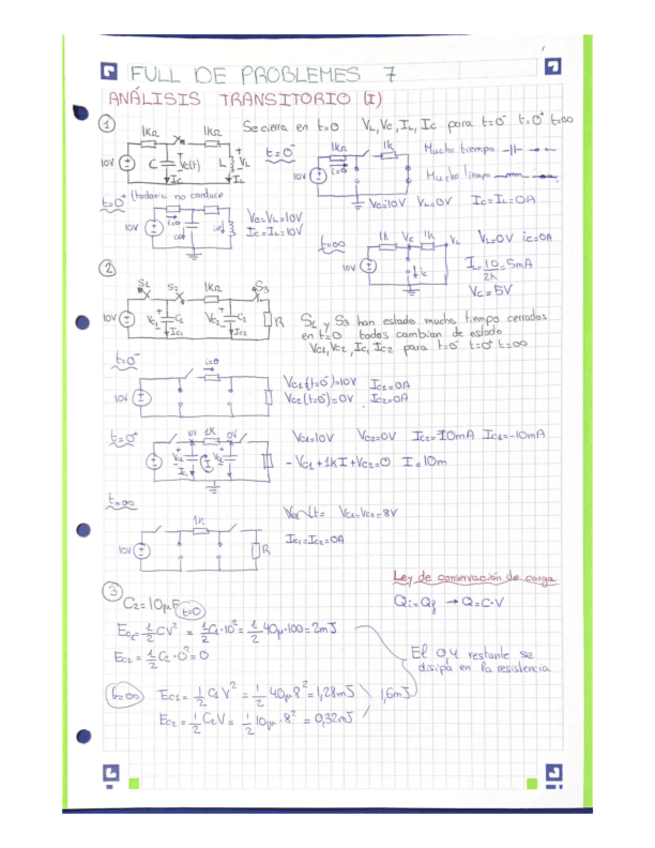 FULL DE PROBLEMES 7
ANÁLISIS TRANSITORIO (I)
① Se cierra en t=0 VL, VC, IL, IC para t=0⁻ t=0⁺ t=∞
1KΩ 1KΩ
10V C Vc(t) L VL
Ic IL
t=0⁻
1KΩ 1k
10V i=0
Mucho tiempo
Mucho tiempo
Vc=10V VL=0V Ic=IL=0A
t=0⁺ (todavía no conduce
10V i=0
Vc=VL=10V
Ic=IL=10V
t=∞
1K Vc 1k VL
10V ic
VL=0V ic=0A
IL=10/2k=5mA
Vc=5V
②
S1 S2 1KΩ S3
10V Vc1 C1 Vc2 C2 R
Ic1 Ic2
S1 y S3 han estado mucho tiempo cerrados
en t=0 todos cambian de estado
Vc1, Vc2, Ic1 Ic2 para t=0⁻ t=0⁺ t=∞
t=0⁻
i=0
10V
Vc1(t=0⁻)=10V Ic1=0A
Vc2(t=0⁻)=0V Ic2=0A
t=0⁺
1K 0V
Vc1=10V Vc2=0V Ic2=10mA Ic1=-10mA
-Vc1+1kI+Vc2=0 I=10m
t=∞
1K
10V R
Vc1=Vc2=8V
Ic1=Ic2=0A
③
C2=10μF
t=0
Ley de conservación de carga
Qi=Qf → Q=C·V
Ec1=1/2 CV² = 1/2 C1·10²=1/2 40μ·100=2mJ
Ec2=1/2 C2·0²=0
El 0,4 restante se
disipa en la resistencia
t=∞ Ec1=1/2 C1 V²=1/2 40μ 8²=1,28mJ 1,6mJ
Ec2=1/2 C2V=1/2 10μ·8²=0,32mJ